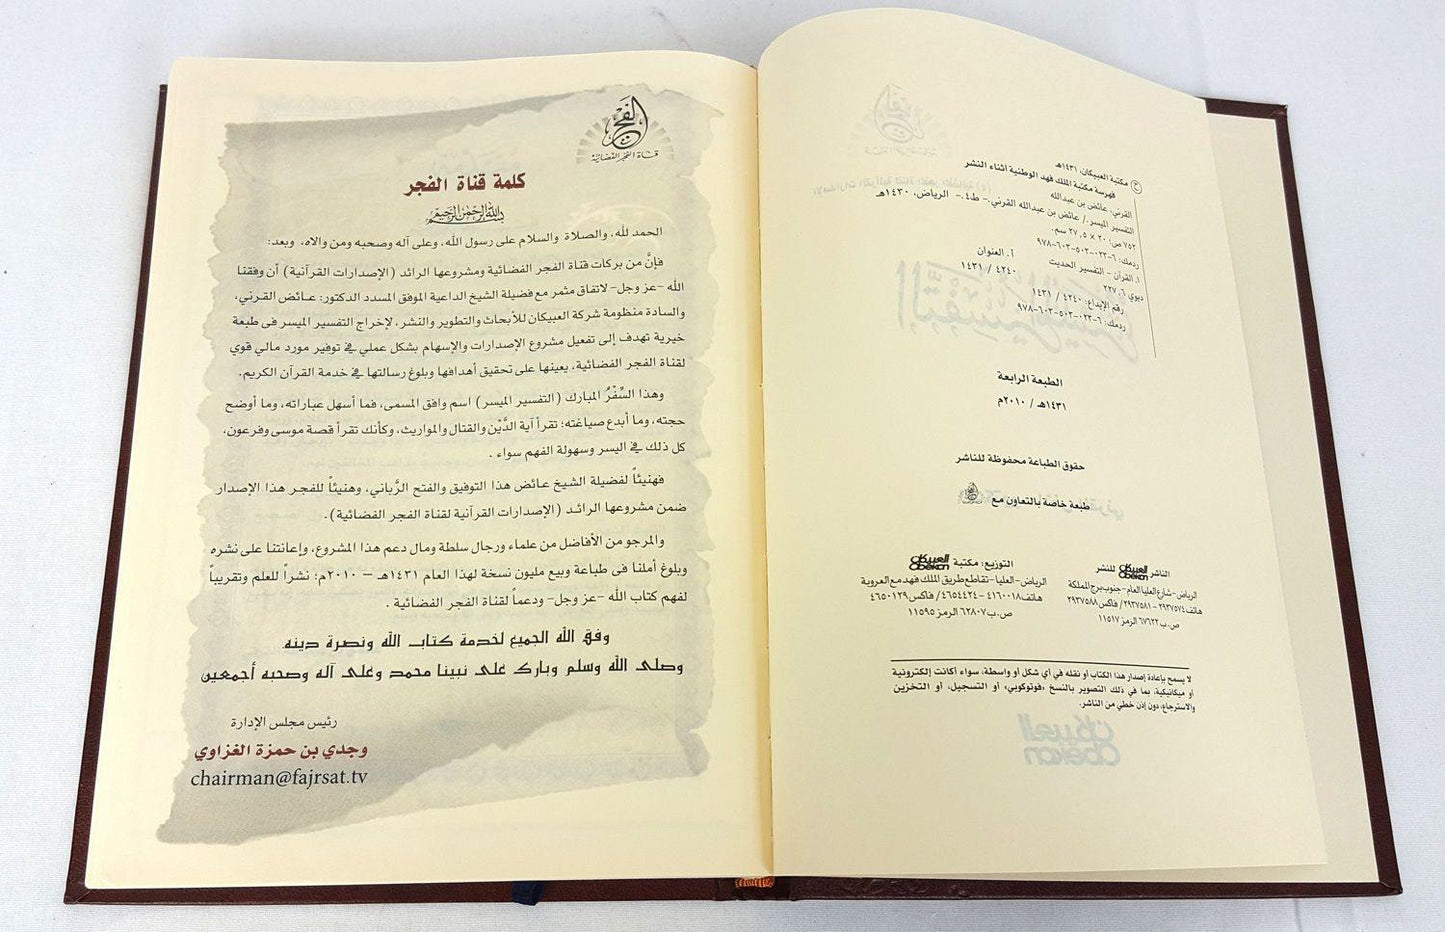 © مكتبة العبيكان، ١٤٣١هـ
فهرسة مكتبة الملك فهد الوطنية أثناء النشر
القرني، عائض بن عبدالله
التفسير الميسر./ عائض بن عبدالله القرني.- ط٤.- الرياض، ١٤٣٠هـ
٧٥٢ ص؛ ٢٠ × ٢٧.٥ سم.
ردمك: ٦-٠٢٢-٥٠٣-٦٠٣-٩٧٨
١. القرآن - التفسير الحديث أ. العنوان
ديوي ٢٢٧.٦ ٤٢٤٠ / ١٤٣١
رقم الإيداع: ٤٢٤٠ / ١٤٣١
ردمك: ٦-٠٢٢-٥٠٣-٦٠٣-٩٧٨
الطبعة الرابعة
١٤٣١هـ / ٢٠١٠م
حقوق الطباعة محفوظة للناشر
طبعة خاصة بالتعاون مع
الناشر العبيكان Obekon للنشر
الرياض- شارع العليا العام- جنوب برج المملكة
هاتف ٢٩٣٧٥٧٤ - ٢٩٣٧٥٨١/ فاكس ٢٩٣٧٥٨٨
ص.ب ٦٧٦٢٢ الرمز ١١٥١٧
التوزيع: مكتبة العبيكان Obekon
الرياض- العليا- تقاطع طريق الملك فهد مع العروبة
هاتف ٤١٦٠٠١٨ - ٤٦٥٤٤٢٤ / فاكس ٤٦٥٠١٢٩
ص.ب ٦٢٨٠٧ الرمز ١١٥٩٥
لا يسمح بإعادة إصدار هذا الكتاب أو نقله في أي شكل أو واسطة، سواء أكانت إلكترونية
أو ميكانيكية، بما في ذلك التصوير بالنسخ «فوتوكوبي» أو التسجيل، أو التخزين
والاسترجاع، دون إذن خطي من الناشر.
الفجر
قناة الفجر الفضائية
كلمة قناة الفجر
بسم الله الرحمن الرحيم
الحمد لله، والصلاة والسلام على رسول الله، وعلى آله وصحبه ومن والاه، وبعد:
فإنَّ من بركات قناة الفجر الفضائية ومشروعها الرائد (الإصدارات القرآنية) أن وفقنا
الله -عز وجل- لاتفاق مثمر مع فضيلة الشيخ الداعية الموفق المسدد الدكتور: عائض القرني،
والسادة منظومة شركة العبيكان للأبحاث والتطوير والنشر، لإخراج التفسير الميسر في طبعة
خيرية تهدف إلى تفعيل مشروع الإصدارات والإسهام بشكل عملي في توفير مورد مالي قوي
لقناة الفجر الفضائية، يعينها على تحقيق أهدافها وبلوغ رسالتها في خدمة القرآن الكريم.
وهذا السِّفْرُ المبارك (التفسير الميسر) اسم وافق المسمى، فما أسهل عباراته، وما أوضح
حجته، وما أبدع صياغته؛ تقرأ آية الدَّيْن والقتال والمواريث، وكأنك تقرأ قصة موسى وفرعون،
كل ذلك في اليسر وسهولة الفهم سواء .
فهنيئاً لفضيلة الشيخ عائض هذا التوفيق والفتح الرَّباني، وهنيئاً للفجر هذا الإصدار
ضمن مشروعها الرائد (الإصدارات القرآنية لقناة الفجر الفضائية).
والمرجو من الأفاضل من علماء ورجال سلطة ومال دعم هذا المشروع، وإعانتنا على نشره
وبلوغ أملنا في طباعة وبيع مليون نسخة لهذا العام ١٤٣١هـ – ٢٠١٠م؛ نشراً للعلم وتقريباً
لفهم كتاب الله -عز وجل- ودعماً لقناة الفجر الفضائية .
وفق الله الجميع لخدمة كتاب الله ونصرة دينه.
وصلى الله وسلم وبارك على نبينا محمد وعلى آله وصحبه أجمعين
رئيس مجلس الإدارة
وجدي بن حمزة الغزاوي
chairman@fajrsat.tv